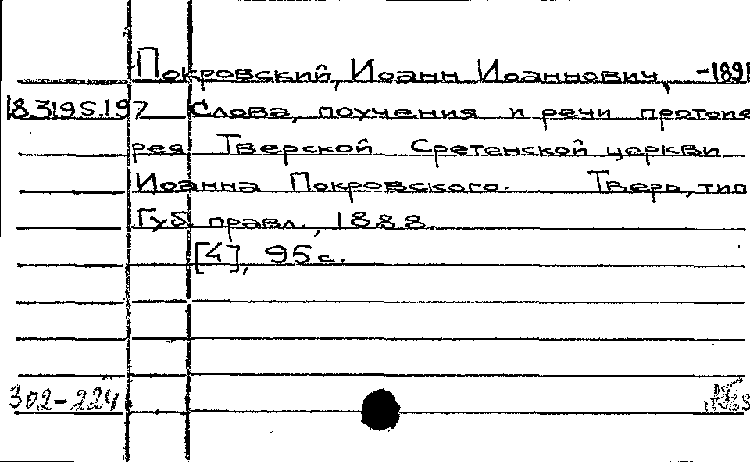 Покровский, Иоанн Иоаннович, -1891
18.3195.197 Слова, поучения и речи протоие
рея Тверской Сретенской церкви
Иоанна Покровского. Тверь, тип
Губ. правл., 1888.
[4], 95 с.
302-224